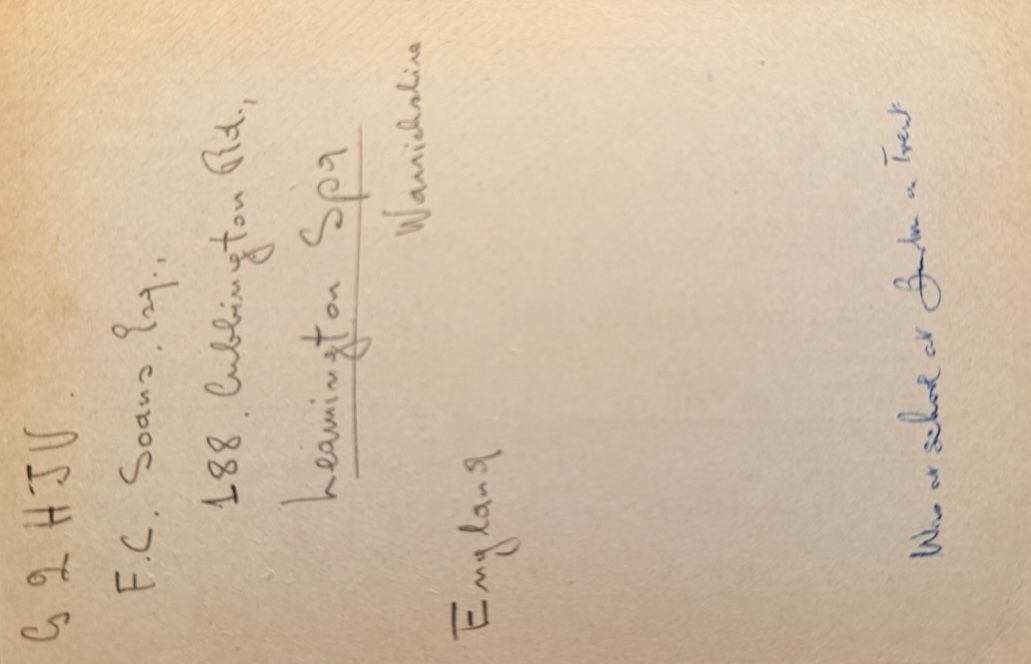 G2HJU.
F.C. Soans. Esq.,
188. Cubbington Rd.,
Leamington Spa
Warwickshire
England
Was at school at Burton on Trent